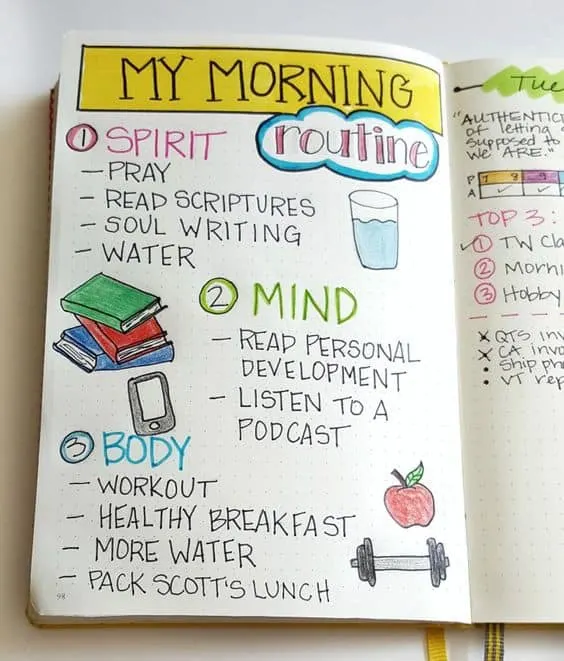 MY MORNING
routine
1 SPIRIT
- PRAY
- READ SCRIPTURES
- SOUL WRITING
- WATER
2 MIND
- READ PERSONAL
DEVELOPMENT
- LISTEN TO A
PODCAST
3 BODY
- WORKOUT
- HEALTHY BREAKFAST
- MORE WATER
- PACK SCOTT'S LUNCH
98
"AUTHENTIC
of letting
supposed to
we ARE."
P 7 8 9
A ✓ ✓
TOP 3:
✓ 1 TW
2
3 Hobby
x QTS
x CA
• Ship
• VT